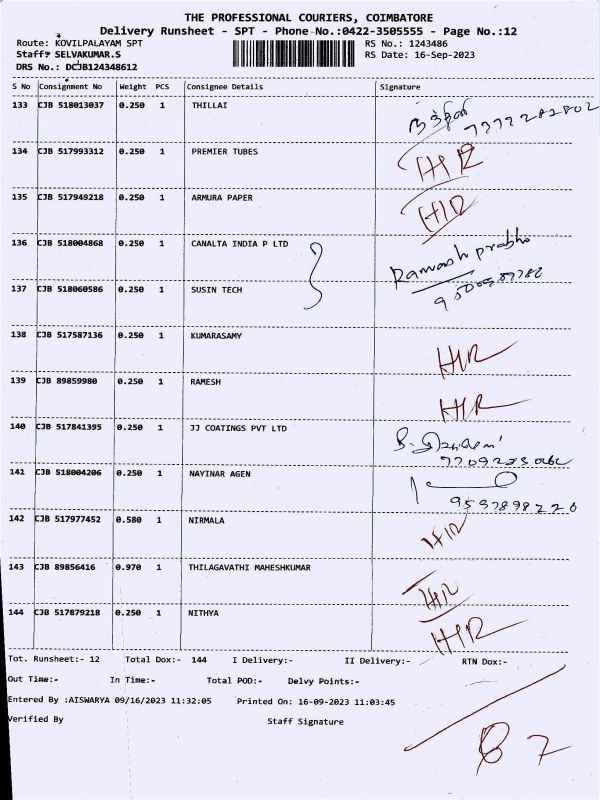 THE PROFESSIONAL COURIERS, COIMBATORE
Delivery Runsheet - SPT - Phone No.:0422-3505555 - Page No.:12
Route: KOVILPALAYAM SPT RS No.: 1243486
Staff: SELVAKUMAR.S RS Date: 16-Sep-2023
DRS No.: DCJB124348612
S No Consignment No Weight PCS Consignee Details Signature
133 CJB 518013037 0.250 1 THILLAI
134 CJB 517993312 0.250 1 PREMIER TUBES
135 CJB 517949218 0.250 1 ARMURA PAPER
136 CJB 518004868 0.250 1 CANALTA INDIA P LTD
137 CJB 518060586 0.250 1 SUSIN TECH
138 CJB 517587136 0.250 1 KUMARASAMY
139 CJB 89859980 0.250 1 RAMESH
140 CJB 517841395 0.250 1 JJ COATINGS PVT LTD
141 CJB 518004206 0.250 1 NAYINAR AGEN
9597898220
142 CJB 517977452 0.580 1 NIRMALA
143 CJB 89856416 0.970 1 THILAGAVATHI MAHESHKUMAR
144 CJB 517879218 0.250 1 NITHYA
Tot. Runsheet:- 12 Total Dox:- 144 I Delivery:- II Delivery:- RTN Dox:-
Out Time:- In Time:- Total POD:- Delvy Points:-
Entered By :AISWARYA 09/16/2023 11:32:05 Printed On: 16-09-2023 11:03:45
Verified By Staff Signature
87